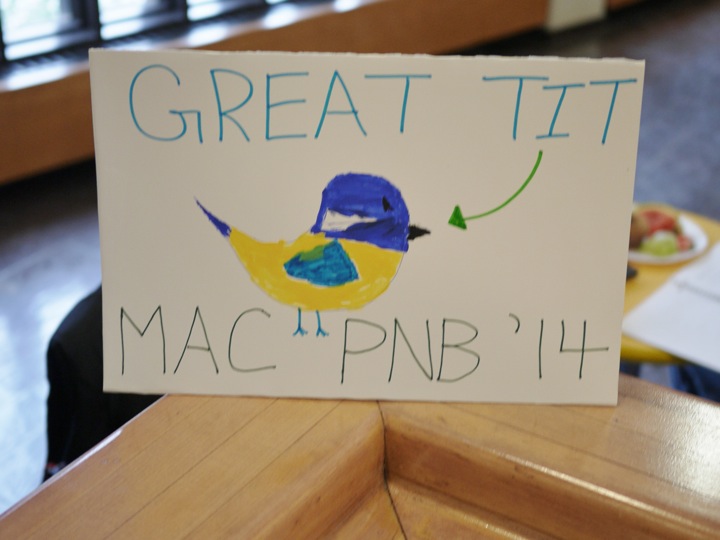 GREAT TIT
MAC PNB '14